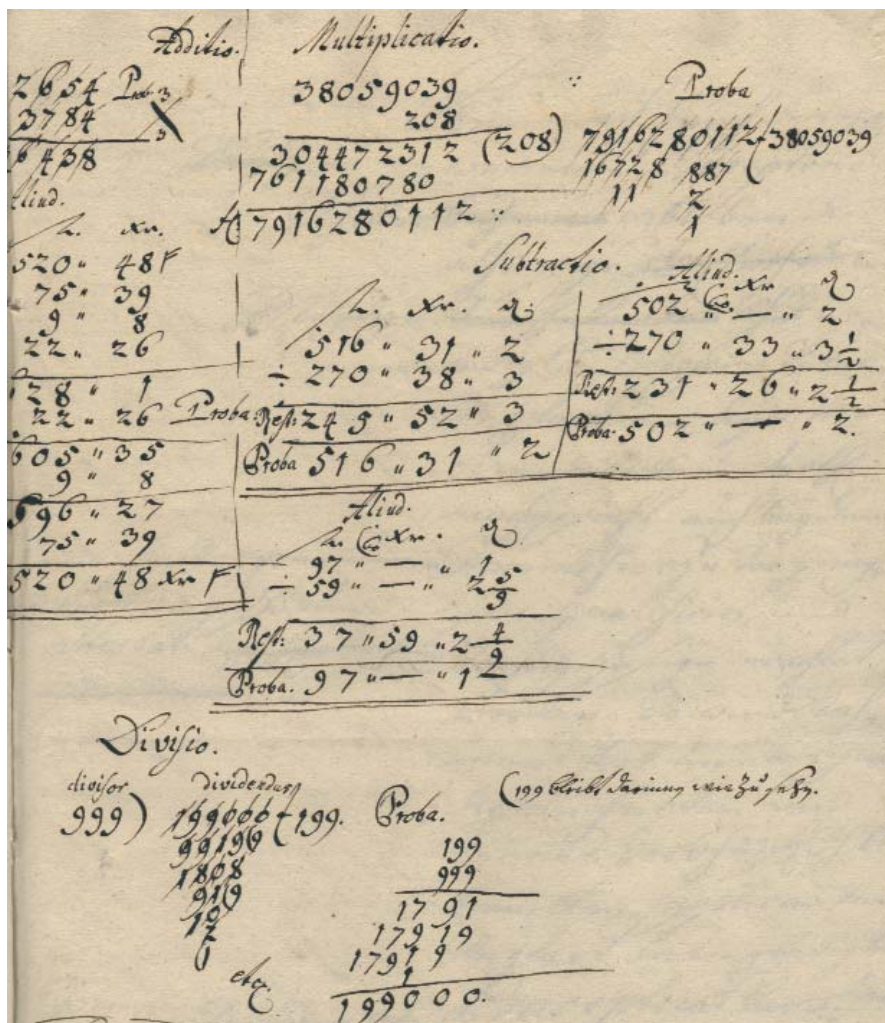 Additio.
2654 Prob 3
3784 3
6438
Aliud.
fl. Xr.
520 " 48 F
75 " 39
9 " 8
22 " 26
28 " 1
22 " 26 Proba
605 " 35
9 " 8
596 " 27
75 " 39
520 " 48 Xr F
Multiplicatio.
38059039
208
304472312 (208)
761180780
7916280112
Proba
7916280112 (38059039
16728 887
11 2
1
Subtractio.
fl. Xr. ₰
516 " 31 " 2
÷ 270 " 38 " 3
Rest: 245 " 52 " 3
Proba 516 " 31 " 2
Aliud.
fl. Xr ₰
502 " — " 2
÷ 270 " 33 " 3 1/2
Rest: 231 " 26 " 2 1/2
Proba: 502 " — " 2.
Aliud.
fl. Xr. ₰
97 " — " 1
÷ 59 " — " 2 5/9
Rest: 37 " 59 " 2 4/9
Proba. 97 " — " 1
Divisio.
divisor dividendus (199 bleibt darinnen wie zu sehn.
999) 199000 (199. Proba.
99190
1808
919
10
2
1
199
999
1791
17919
17919
1
etc
199000.